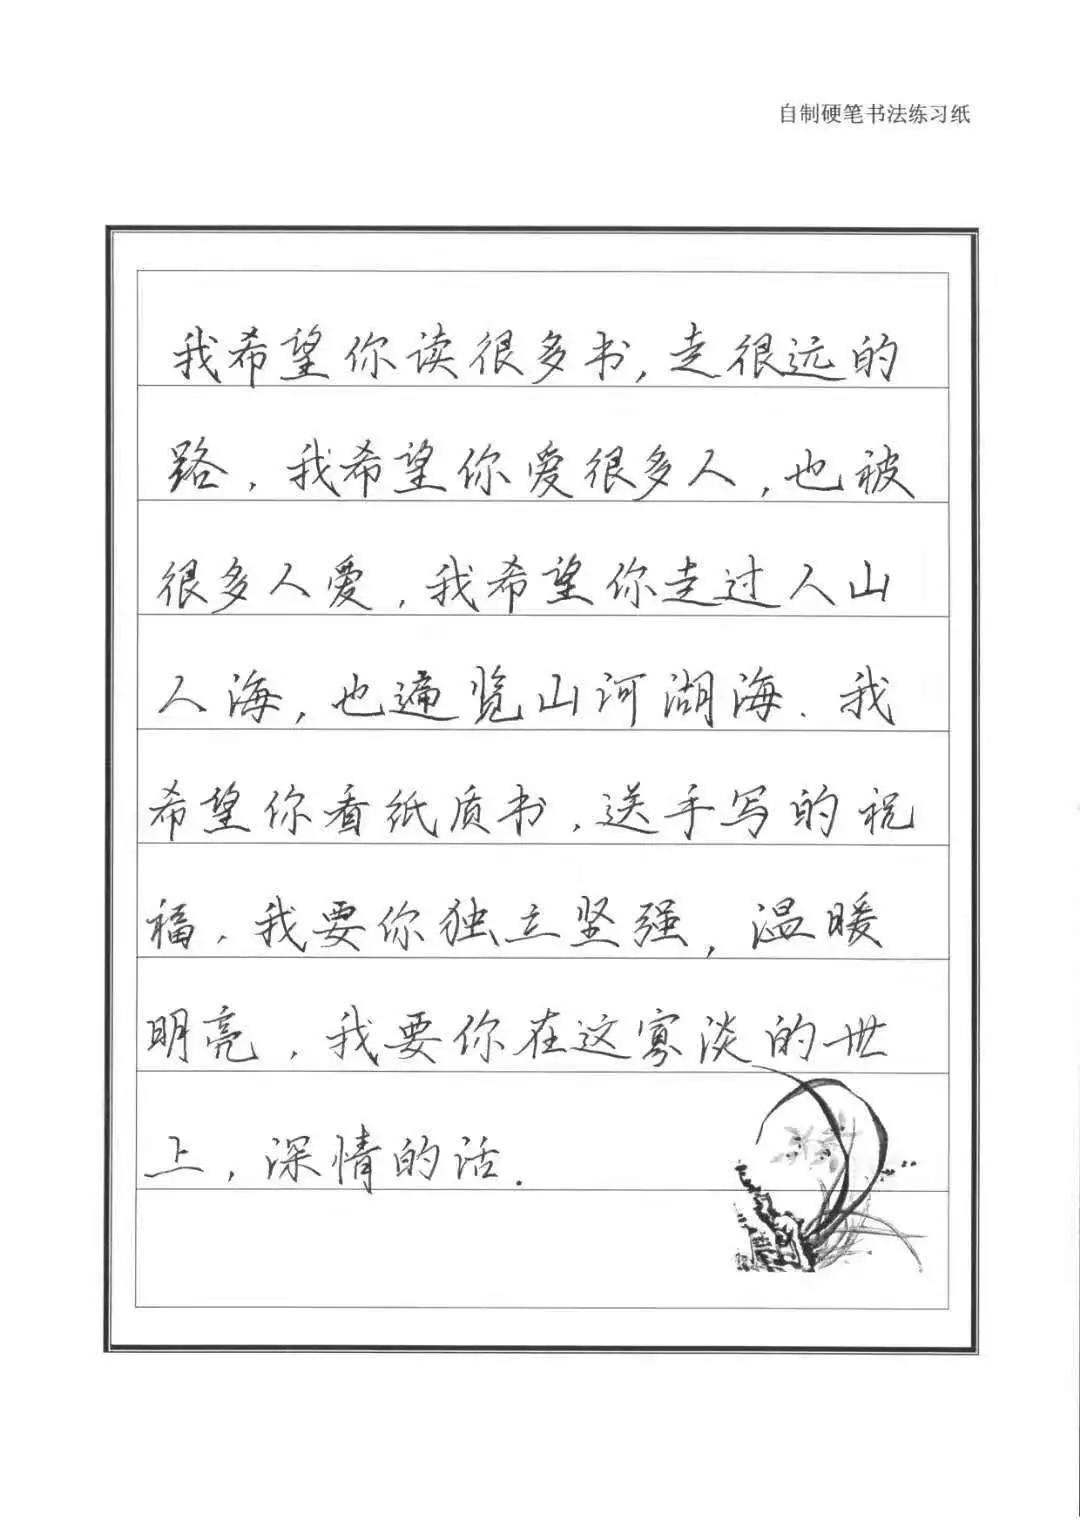 自制硬笔书法练习纸
我希望你读很多书,走很远的
路,我希望你爱很多人,也被
很多人爱,我希望你走过人山
人海,也遍览山河湖海.我
希望你看纸质书,送手写的祝
福.我要你独立坚强,温暖
明亮,我要你在这寡淡的世
上,深情的活.